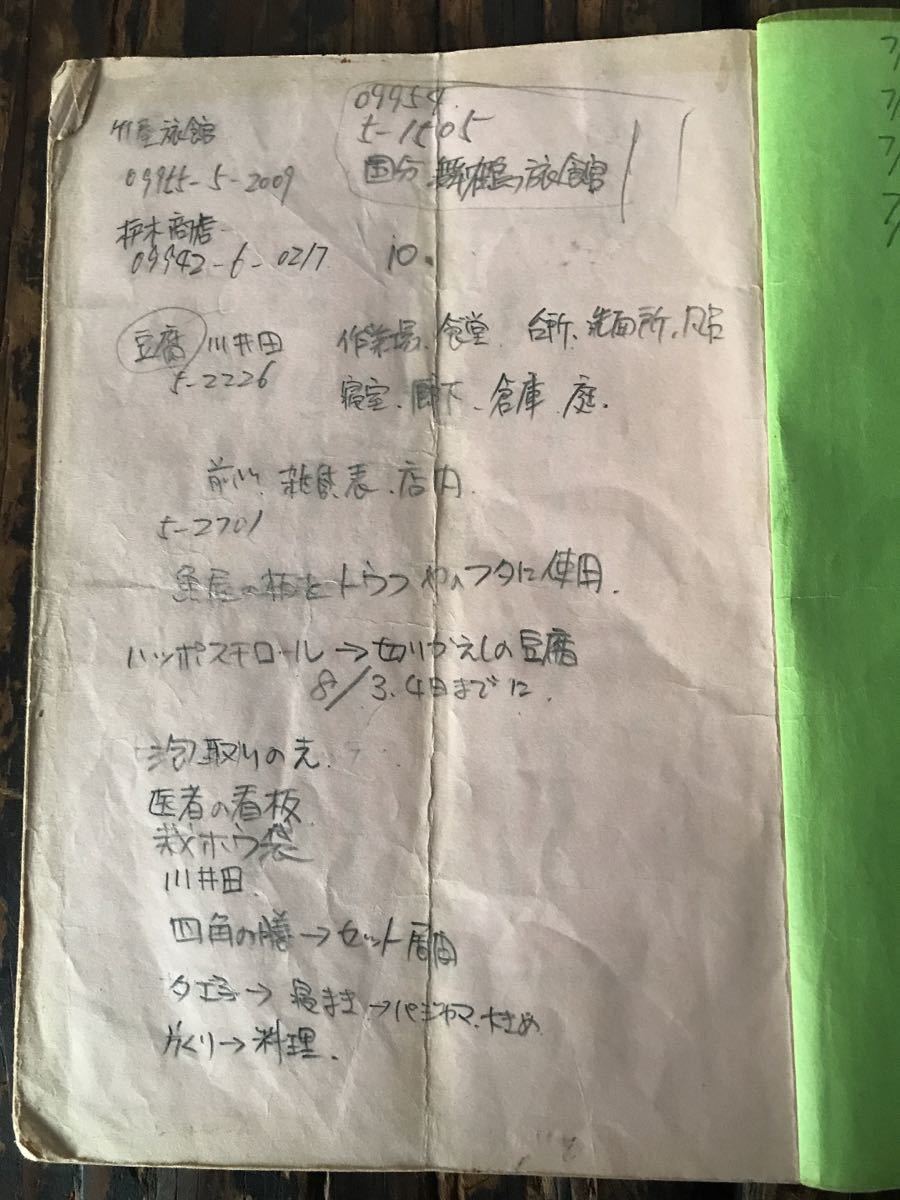 竹屋旅館
09955-5-2009
09954
5-1505
国分 舞鶴旅館
商店
09942-6-0217
10.
豆腐 川井田
5-2226
作業場、食堂 台所、洗面所、風呂
寝室、廊下、倉庫 庭.
前川 雑貨 表、店内
5-2701
魚屋の を トウフ やのフタに使用.
ハッポスチロール→切りかえしの豆腐
8/3.4日までに.
泡取りの
医者の看板
裁ホウ袋
川井田
四角の膳→セット
タエ子→寝まき→パジャマ、大きめ
→料理.
7/
7/
7/
7/